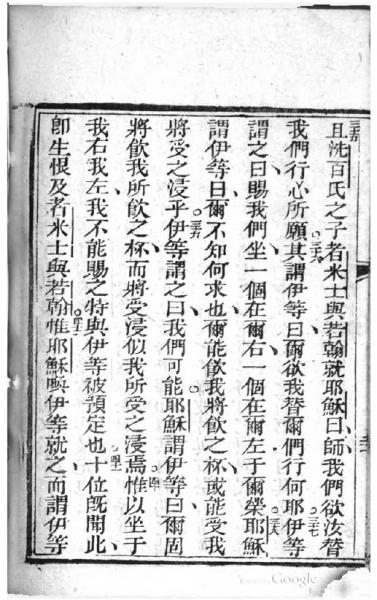 且洗百氏之子者米士與若翰就耶穌曰師我們欲汝替
我們行心所願其謂伊等曰爾欲我替爾們行何耶伊等
謂之曰賜我們坐一個在爾右一個在爾左于爾榮耶穌
謂伊等曰爾不知何求也爾能飲我將飲之杯或能受我
將受之浸乎伊等謂之曰我們可能耶穌謂伊等曰爾固
將飲我所飲之杯而將受浸似我所受之浸焉惟以坐于
我右我左我不能賜之特與伊等被預定也十位既聞此
卽生恨及者米士與若翰惟耶穌喚伊等就之而謂伊等
Google